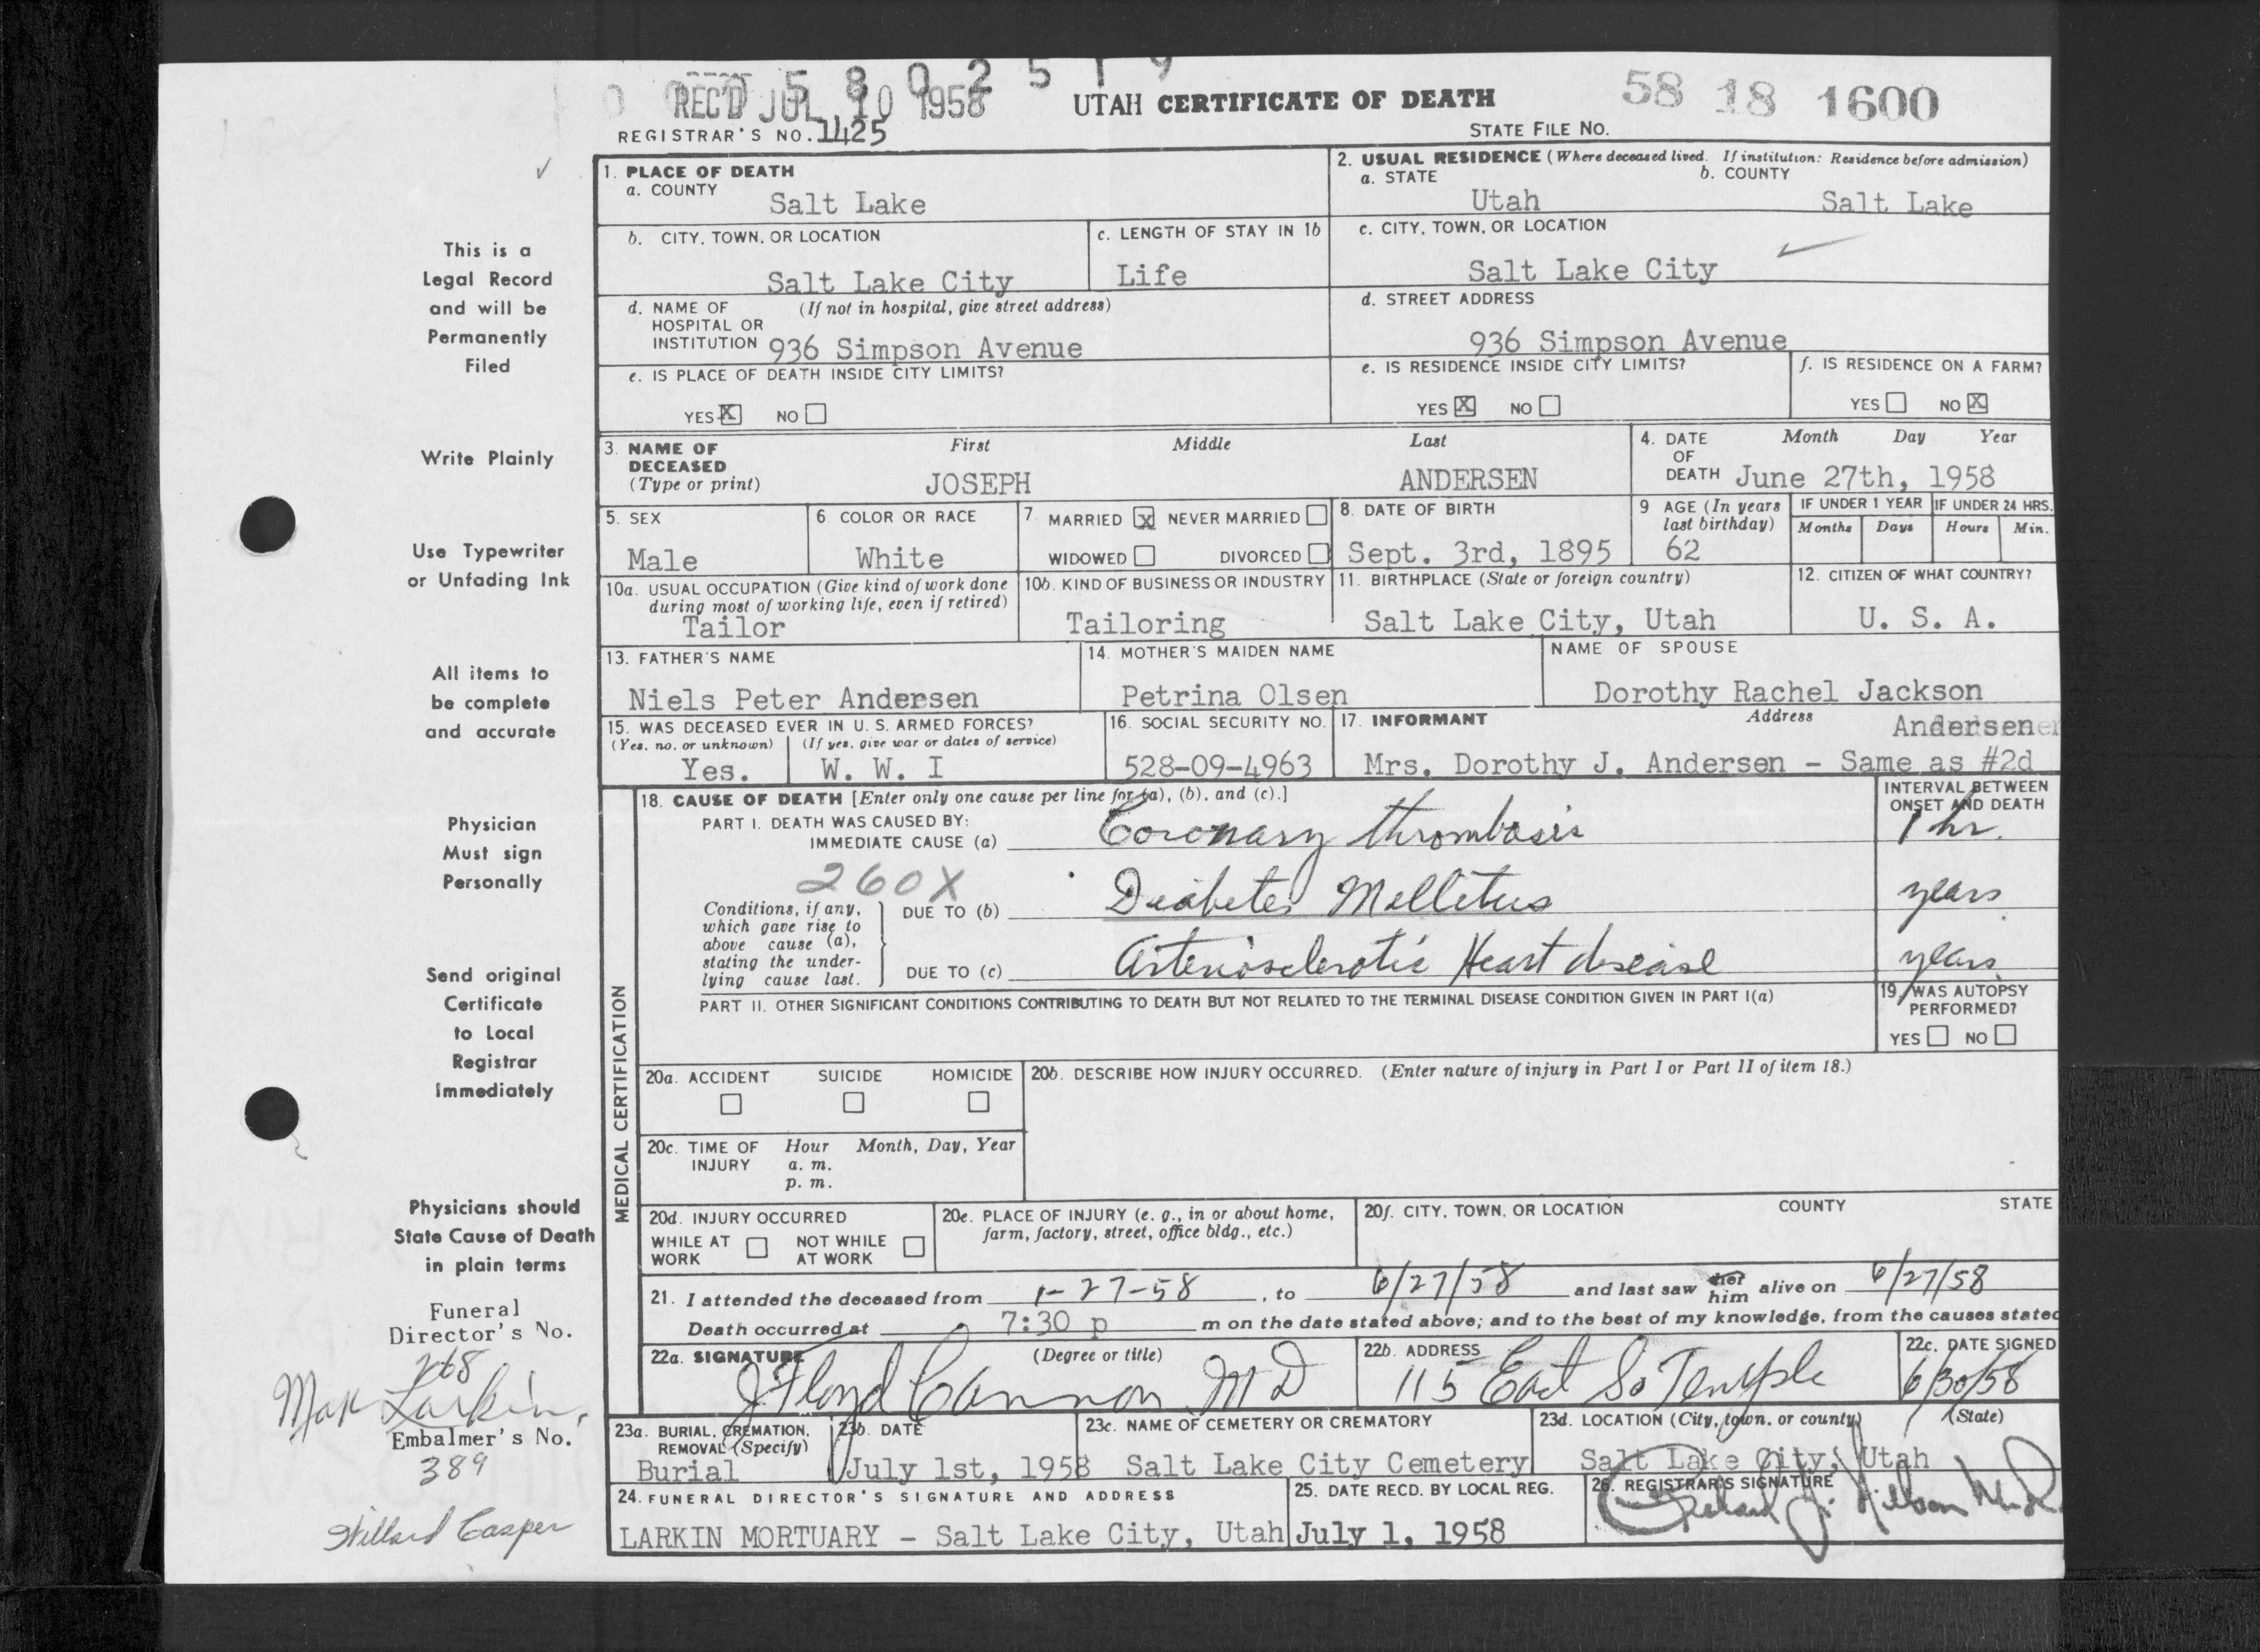 0 0 5 8 0 2 5 1 9
REC'D JUL 10 1958
UTAH CERTIFICATE OF DEATH
58 18 1600
REGISTRAR'S NO. 1425
STATE FILE NO.
1. PLACE OF DEATH
a. COUNTY
Salt Lake
2. USUAL RESIDENCE (Where deceased lived. If institution: Residence before admission)
a. STATE b. COUNTY
Utah Salt Lake
b. CITY, TOWN, OR LOCATION
Salt Lake City
c. LENGTH OF STAY IN 1b
Life
c. CITY, TOWN, OR LOCATION
Salt Lake City
d. NAME OF (If not in hospital, give street address)
HOSPITAL OR
INSTITUTION 936 Simpson Avenue
d. STREET ADDRESS
936 Simpson Avenue
e. IS PLACE OF DEATH INSIDE CITY LIMITS?
YES X NO
e. IS RESIDENCE INSIDE CITY LIMITS?
YES X NO
f. IS RESIDENCE ON A FARM?
YES NO X
3. NAME OF First Middle Last
DECEASED
(Type or print) JOSEPH ANDERSEN
4. DATE Month Day Year
OF
DEATH June 27th, 1958
5. SEX
Male
6. COLOR OR RACE
White
7. MARRIED X NEVER MARRIED
WIDOWED DIVORCED
8. DATE OF BIRTH
Sept. 3rd, 1895
9 AGE (In years
last birthday)
62
IF UNDER 1 YEAR
Months Days
IF UNDER 24 HRS.
Hours Min.
10a. USUAL OCCUPATION (Give kind of work done
during most of working life, even if retired)
Tailor
10b. KIND OF BUSINESS OR INDUSTRY
Tailoring
11. BIRTHPLACE (State or foreign country)
Salt Lake City, Utah
12. CITIZEN OF WHAT COUNTRY?
U. S. A.
13. FATHER'S NAME
Niels Peter Andersen
14. MOTHER'S MAIDEN NAME
Petrina Olsen
NAME OF SPOUSE
Dorothy Rachel Jackson
Andersen
15. WAS DECEASED EVER IN U. S. ARMED FORCES?
(Yes, no, or unknown) (If yes, give war or dates of service)
Yes. W. W. I
16. SOCIAL SECURITY NO.
528-09-4963
17. INFORMANT Address
Mrs. Dorothy J. Andersen - Same as #2d
MEDICAL CERTIFICATION
18. CAUSE OF DEATH [Enter only one cause per line for (a), (b), and (c).]
INTERVAL BETWEEN
ONSET AND DEATH
PART I. DEATH WAS CAUSED BY:
IMMEDIATE CAUSE (a) Coronary thrombosis 1 hr.
260X
Conditions, if any,
which gave rise to
above cause (a),
stating the under-
lying cause last.
DUE TO (b) Diabetes Mellitus years
DUE TO (c) Arteriosclerotic Heart disease years
PART II. OTHER SIGNIFICANT CONDITIONS CONTRIBUTING TO DEATH BUT NOT RELATED TO THE TERMINAL DISEASE CONDITION GIVEN IN PART I(a)
19. WAS AUTOPSY
PERFORMED?
YES NO
20a. ACCIDENT SUICIDE HOMICIDE
20b. DESCRIBE HOW INJURY OCCURRED. (Enter nature of injury in Part I or Part II of item 18.)
20c. TIME OF Hour Month, Day, Year
INJURY a. m.
p. m.
20d. INJURY OCCURRED
WHILE AT NOT WHILE
WORK AT WORK
20e. PLACE OF INJURY (e. g., in or about home,
farm, factory, street, office bldg., etc.)
20f. CITY, TOWN, OR LOCATION COUNTY STATE
21. I attended the deceased from 1-27-58, to 6/27/58 and last saw her him alive on 6/27/58
Death occurred at 7:30 p m on the date stated above; and to the best of my knowledge, from the causes stated
22a. SIGNATURE (Degree or title)
J Floyd Cannon MD
22b. ADDRESS
115 East So Temple
22c. DATE SIGNED
6/30/58
23a. BURIAL, CREMATION,
REMOVAL (Specify)
Burial
23b. DATE
July 1st, 1958
23c. NAME OF CEMETERY OR CREMATORY
Salt Lake City Cemetery
23d. LOCATION (City, town, or county) (State)
Salt Lake City, Utah
24. FUNERAL DIRECTOR'S SIGNATURE AND ADDRESS
LARKIN MORTUARY - Salt Lake City, Utah
25. DATE RECD. BY LOCAL REG.
July 1, 1958
26. REGISTRAR'S SIGNATURE
This is a
Legal Record
and will be
Permanently
Filed
Write Plainly
Use Typewriter
or Unfading Ink
All items to
be complete
and accurate
Physician
Must sign
Personally
Send original
Certificate
to Local
Registrar
Immediately
Physicians should
State Cause of Death
in plain terms
Funeral
Director's No.
268
Max Larkin
Embalmer's No.
389
Willard Casper